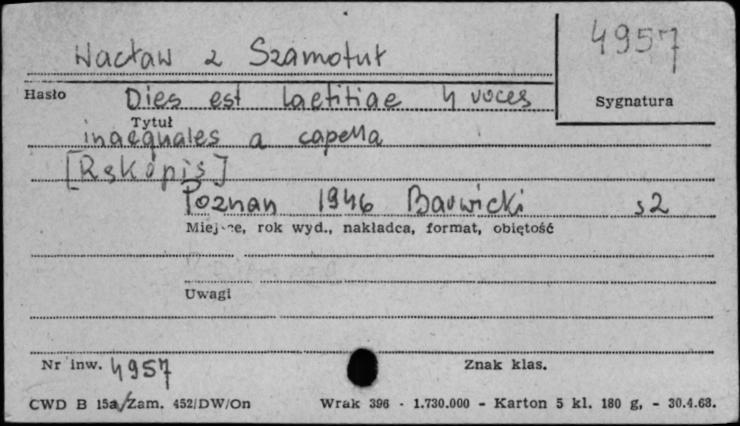 Wacław z Szamotuł
4957
Hasło
Sygnatura
Dies est laetitiae 4 voces
Tytuł
inaequales a capella
[Rękopis]
Poznań 1946 Barwicki s2
Miejsce, rok wyd., nakładca, format, obiętość
Uwagi
Nr inw. 4957
Znak klas.
CWD B 15a/Zam. 452/DW/On
Wrak 396 - 1.730.000 - Karton 5 kl. 180 g, - 30.4.63.